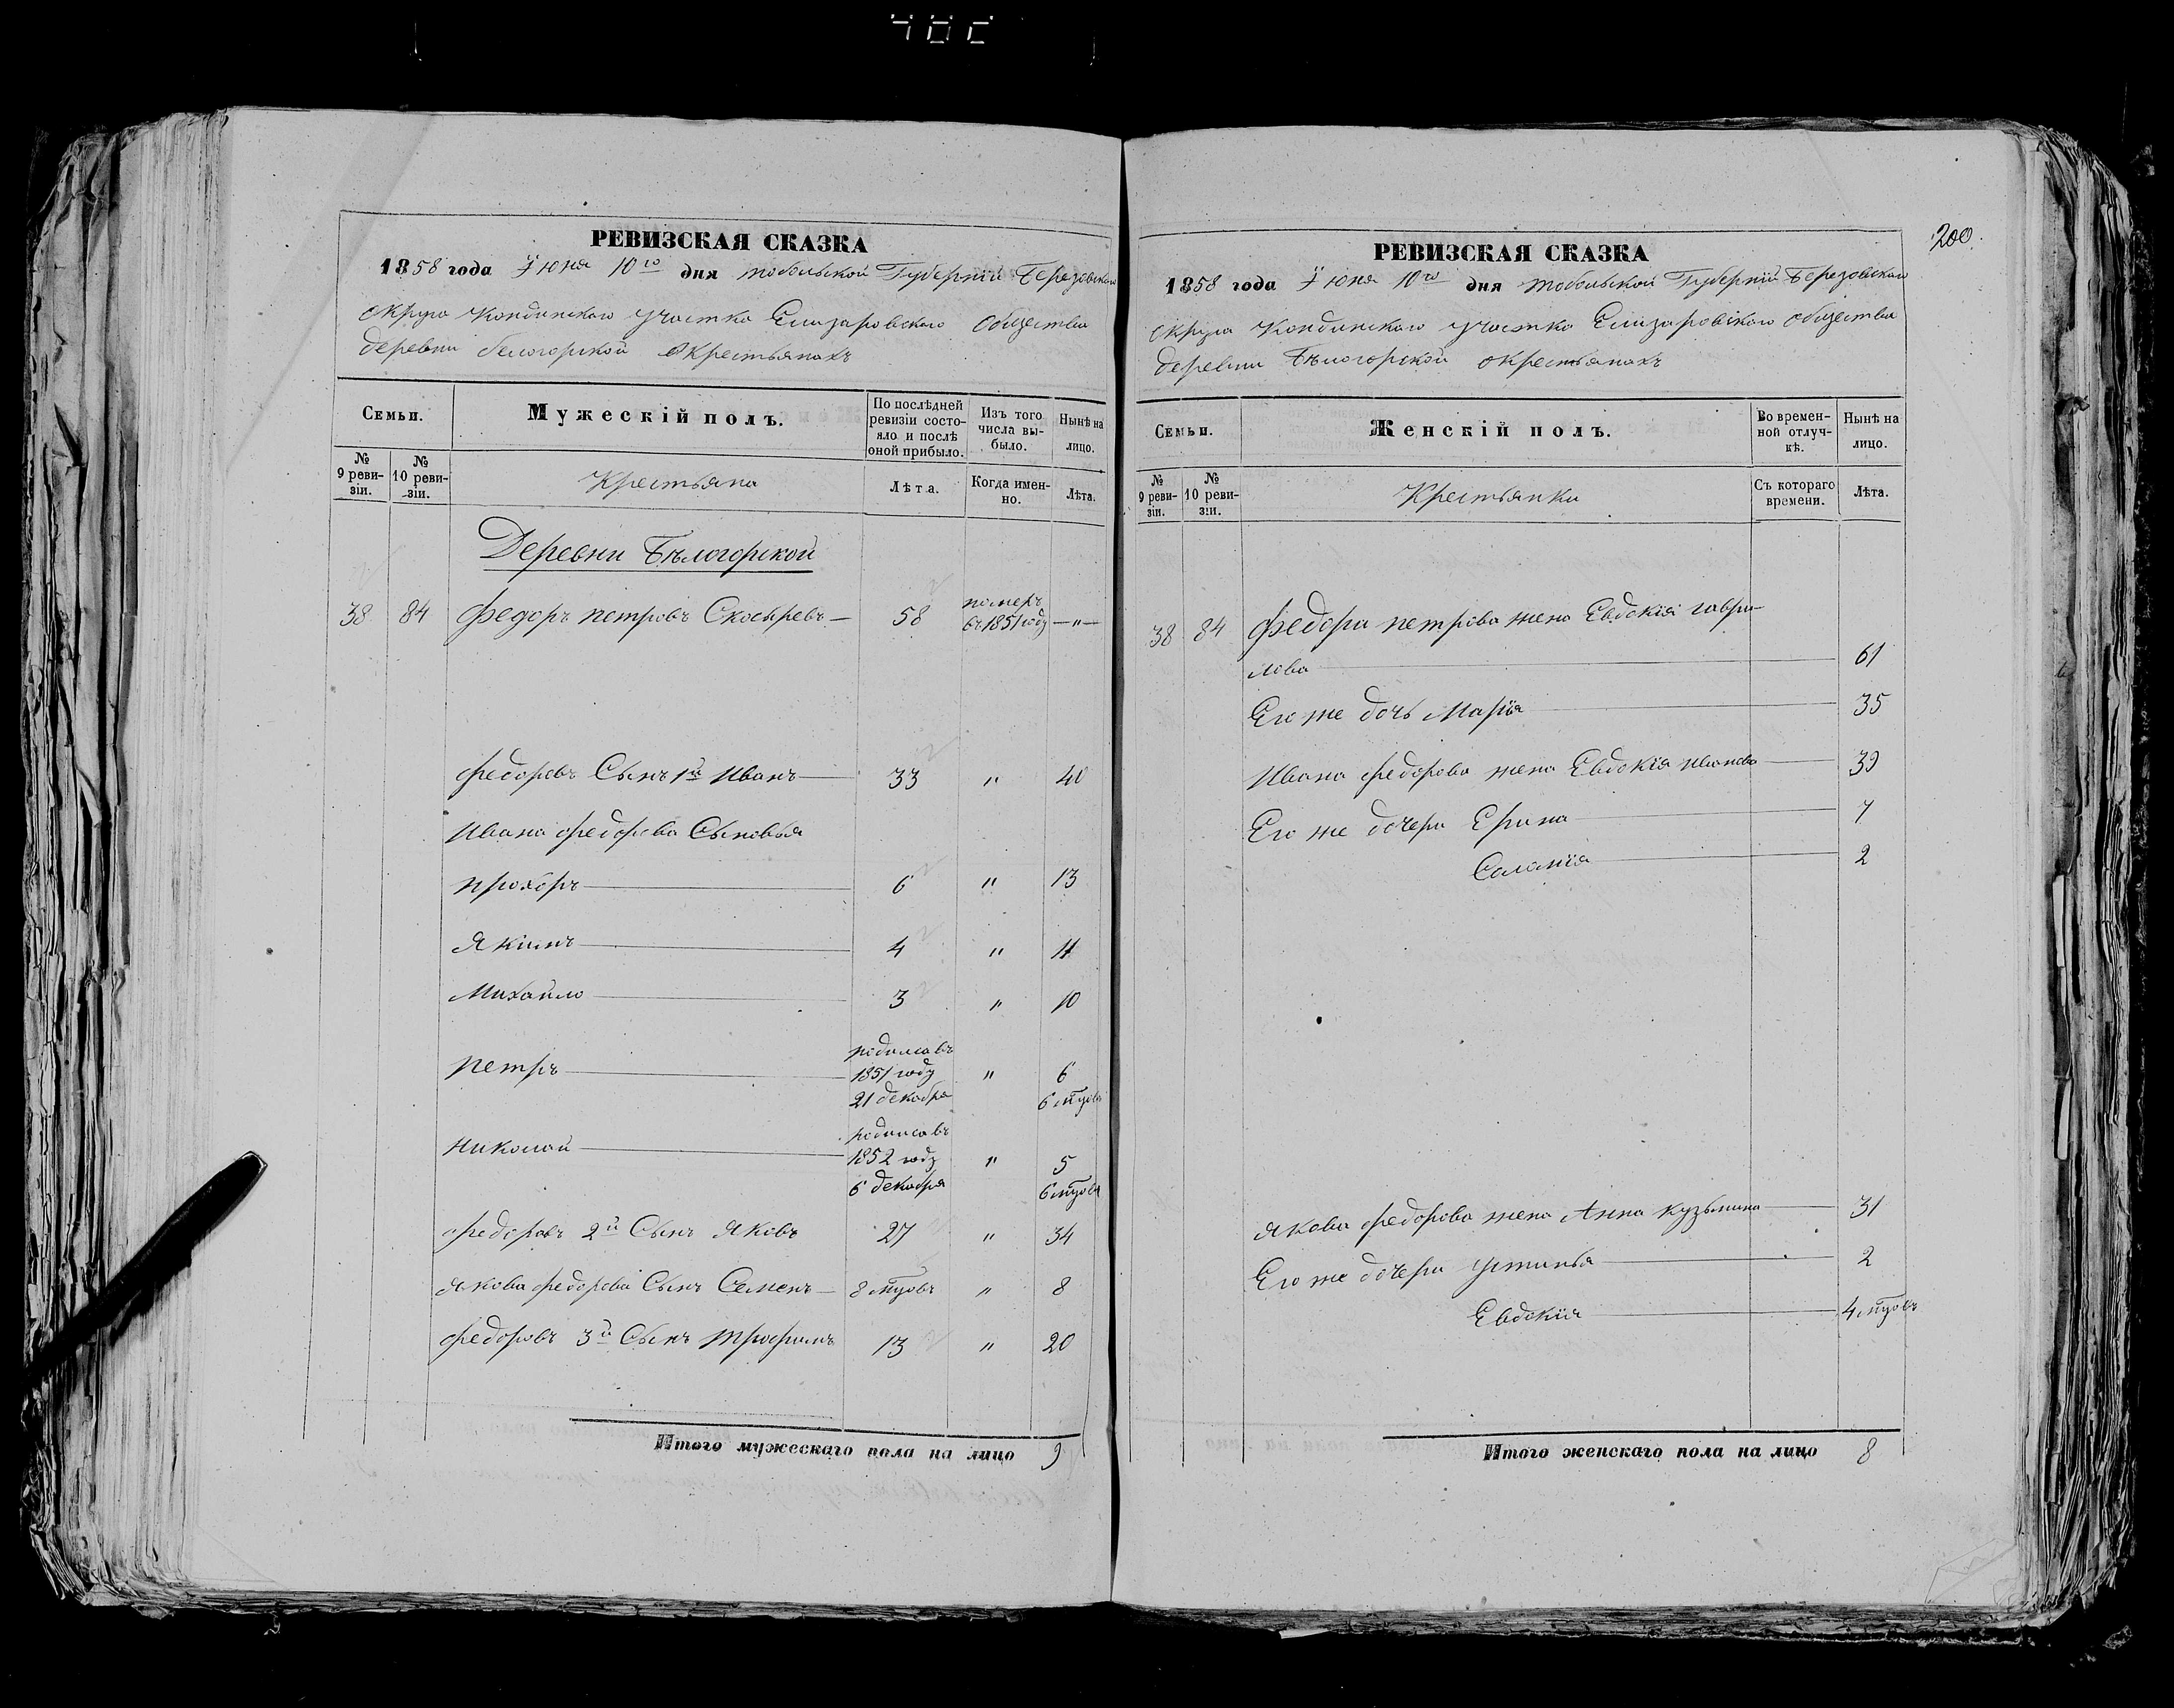 200.
РЕВИЗСКАЯ СКАЗКА
1858 года Їюня 10го дня тобольской Губернїи Березовскаго
округа Кондинскаго участка Елизаровскаго общества
деревни белогорской окрестьянахъ
Семьи.
Мужескій полъ.
По послѣдней ревизіи состояло и послѣ оной прибыло.
Изъ того числа выбыло.
Нынѣ на лицо.
№ 9 ревизіи.
№ 10 ревизіи.
Крестьяна
Лѣта.
Когда именно.
Лѣта.
Деревни Бѣлогорской
38 84 Федоръ петровъ Скосыревъ — 58 померъ въ 1851 году —"—
федоровъ Сынъ 1й Иванъ 33 " 40
Ивана федорова Сыновья
прохоръ 6 " 13
Якимъ 4 " 11
Михайло 3 " 10
петръ родился въ 1851 году 21 декабря " 6 6 мцовъ
николай родился въ 1852 году 6 декабря " 5 6 мцовъ
федоровъ 2й Сынъ Яковъ 27 " 34
Якова федорова Сынъ Семенъ — 8 мцовъ " 8
федоровъ 3й Сынъ трофимъ 13 " 20
Итого мужескаго пола на лицо 9
РЕВИЗСКАЯ СКАЗКА
1858 года Їюня 10го дня тобольской Губернїи Березовскаго
округа Кондинскаго участка Елизаровскаго общества
деревни Бѣлогорской окрестьянахъ
Семьи.
Женскій полъ.
Во временной отлучкѣ.
Нынѣ на лицо.
№ 9 ревизіи.
№ 10 ревизіи.
Крестьянки
Съ котораго времени.
Лѣта.
38 84 Федора петрова жена Евдокїя гаври-
лова 61
Его же дочь Марїя 35
Ивана федорова жена Евдокїя иванова 39
Его же дочери Ерина 7
Саламїя 2
Якова федорова жена Анна кузьмина 31
Его же дочери устинья 2
Евдокїя 4 мцовъ
Итого женскаго пола на лицо 8